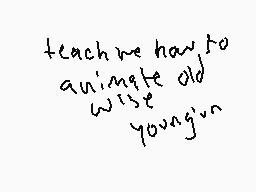 teach me how to
animate old
wise
youngin